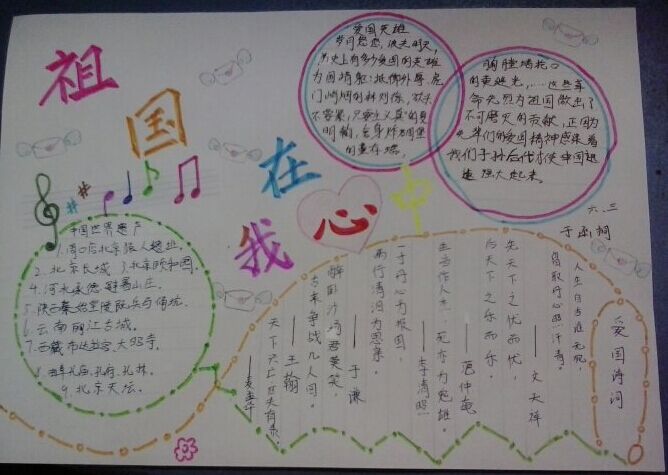 祖国在我心中
爱国英雄
岁月悠悠,浪花朵朵,
历史上有多少爱国的英雄
为国捐躯:抵御外辱、虎
门硝烟的林则徐,砍头
不要紧,只要主义真的夏
明翰,舍身炸碉堡
的董存瑞,
胸膛堵枪口
的黄继光,……这些革
命先烈为祖国做出了
不可磨灭的贡献,正因为
先辈们的爱国精神感染着
我们子孙后代才使中国迅
速强大起来。
六、三
中国世界遗产
1.周口店北京猿人遗址
2.北京长城 3.北京颐和园
4.河北承德、避暑山庄。
5.陕西秦始皇陵及兵马俑坑。
6.云南丽江古城。
7.西藏布达拉宫、大昭寺。
8.曲阜孔庙、孔府、孔林。
9.北京天坛。
爱国诗词
人生自古谁无死,
留取丹心照汗青。
——文天祥
先天下之忧而忧,
后天下之乐而乐。
——范仲淹
生当作人杰,死亦为鬼雄。
——李清照
一寸丹心为报国,
两行清泪为思亲。
——于谦
醉卧沙场君莫笑,
古来争战几人回。
——王翰
天下兴亡匹夫有责。